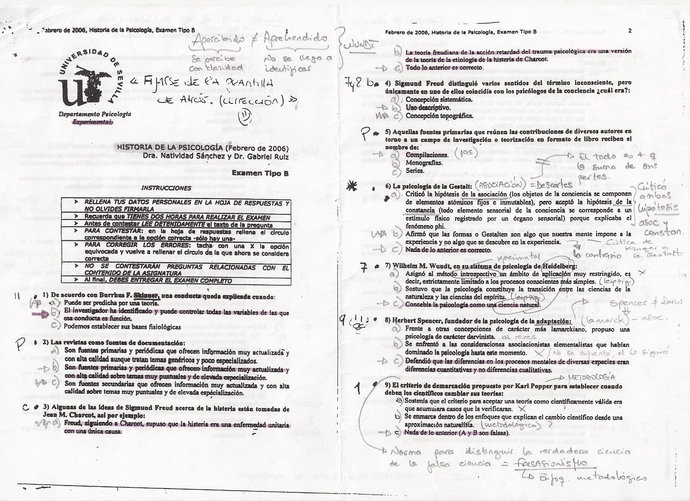 Febrero de 2006, Historia de la Psicología, Examen Tipo B
Apercibido ≠ Aprehendido
WUNDT
Se percibe con claridad
No se llega a identificar
UNIVERSIDAD DE SEVILLA
Departamento Psicología
Experimental
HISTORIA DE LA PSICOLOGÍA (Febrero de 2006)
Dra. Natividad Sánchez y Dr. Gabriel Ruiz
Examen Tipo B
INSTRUCCIONES
> RELLENA TUS DATOS PERSONALES EN LA HOJA DE RESPUESTAS Y
NO OLVIDES FIRMARLA
> Recuerda que TIENES DOS HORAS PARA REALIZAR EL EXAMEN
> Antes de contestar LEE DETENIDAMENTE el texto de la pregunta
> PARA CONTESTAR: en la hoja de respuestas rellena el círculo
correspondiente a la opción correcta -sólo hay una-
> PARA CORREGIR LOS ERRORES: tacha con una X la opción
equivocada y vuelve a rellenar el círculo de la que ahora se considera
correcta
> NO SE CONTESTARÁN PREGUNTAS RELACIONADAS CON EL
CONTENIDO DE LA ASIGNATURA
> Al final, DEBES ENTREGAR EL EXAMEN COMPLETO
1) De acuerdo con Burrhus F. Skinner, una conducta queda explicada cuando:
a) Puede ser predicha por una teoría.
b) El investigador ha identificado y puede controlar todas las variables de las que
esa conducta es función.
c) Podemos establecer sus bases fisiológicas
2) Las revistas como fuentes de documentación:
a) Son fuentes primarias y periódicas que ofrecen información muy actualizada y
con alta calidad aunque tratan temas genéricos y poco especializados.
b) Son fuentes primarias y periódicas que ofrecen información muy actualizada y
con alta calidad sobre temas muy puntuales y de elevada especialización.
c) Son fuentes secundarias que ofrecen información muy actualizada y con alta
calidad sobre temas muy puntuales y de elevada especialización.
3) Algunas de las ideas de Sigmund Freud acerca de la histeria están tomadas de
Jean M. Charcot, así por ejemplo:
a) Freud, siguiendo a Charcot, supuso que la histeria era una enfermedad unitaria
con una única causa.
Febrero de 2006, Historia de la Psicología, Examen Tipo B 2
b) La teoría freudiana de la acción retardada del trauma psicológica era una versión
de la teoría de la etiología de la histeria de Charcot.
c) Todo lo anterior es correcto.
4) Sigmund Freud distinguió varios sentidos del término inconsciente, pero
únicamente en uno de ellos coincidía con los psicólogos de la conciencia ¿cuál era?:
a) Concepción sistemática.
b) Uso descriptivo.
c) Concepción topográfica.
5) Aquellas fuentes primarias que reúnen las contribuciones de diversos autores en
torno a un campo de investigación o teorización en formato de libro reciben el
nombre de:
a) Compilaciones.
b) Monografías.
c) Series.
El todo es + q
la suma de sus
partes.
6) La psicología de la Gestalt: (ASOCIACIÓN) = Descartes
a) Criticó la hipótesis de la asociación (los objetos de la conciencia se componen
de elementos atómicos fijos e inmutables), pero aceptó la hipótesis de la
constancia (todo elemento sensorial de la conciencia se corresponde a un
estímulo físico registrado por un órgano sensorial) porque explicaba el
fenómeno phi.
b) Afirmó que las formas o Gestalten son algo que nuestra mente impone a la
experiencia y no algo que se descubre en la experiencia.
c) Nada de lo anterior es correcto.
Criticó
ambas
hipótesis
7) Wilhelm M. Wundt, en su sistema de psicología de Heidelberg:
a) Asignó al método introspectivo un ámbito de aplicación muy restringido, es
decir, estrictamente limitado a los procesos conscientes más simples. (Leipzig)
b) Sostuvo que la psicología constituye la transición entre las ciencias de la
naturaleza y las ciencias del espíritu. (Leipzig)
c) Concebía la psicología como una ciencia natural.
8) Herbert Spencer, fundador de la psicología de la adaptación: (Lamarck)
a) Frente a otras concepciones de carácter más lamarckiano, propuso una
psicología de carácter darviniano.
b) Se enfrentó a las consideraciones asociacionistas elementalistas que habían
dominado la psicología hasta este momento.
c) Defendió que las diferencias en los procesos mentales de diversas especies eran
diferencias cuantitativas y no diferencias cualitativas.
METODOLOGÍA
9) El criterio de demarcación propuesto por Karl Popper para establecer cuando
deben los científicos cambiar sus teorías:
a) Sostenía que el criterio para aceptar una teoría como científicamente válida era
que acumulara casos que la verificaran.
b) Se enmarca dentro de los enfoques que explican el cambio científico desde una
aproximación naturalista. (metodológica)
c) Nada de lo anterior (A y B son falsas).
Norma para distinguir la verdadera ciencia
de la falsa ciencia = FALSACIONISMO
Enfoq. metodológico